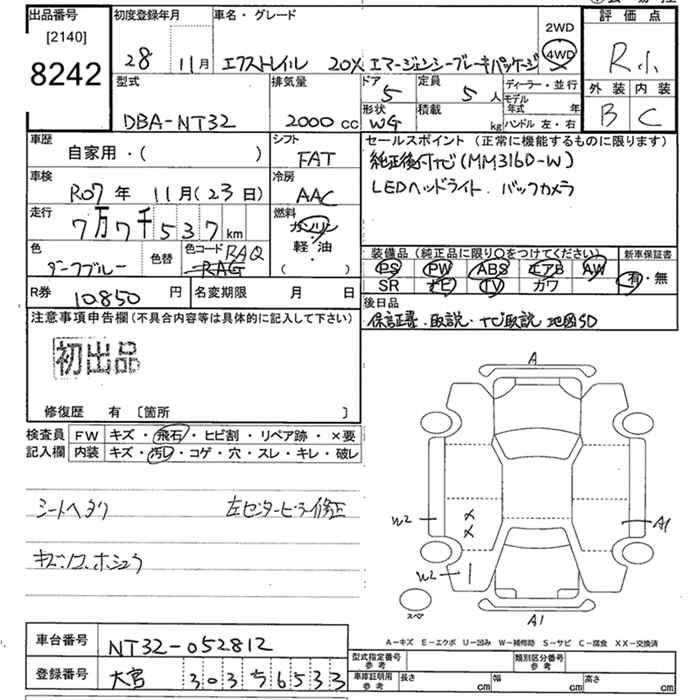 出品番号
[2140]
8242
初度登録年月
28 11月
車名・グレード
エクストレイル 20X エマージェンシーブレーキパッケージ
2WD
4WD
評価点
R小
外装 内装
B C
型式
DBA-NT32
排気量
2000 cc
ドア
5
定員
5 人
ディーラー・並行
形状
WG
積載
kg
モデル年式 年
ハンドル 左・右
車歴
自家用・( )
シフト
FAT
車検
R07 年 11月(23日)
冷房
AAC
走行
7万7千537km
燃料
ガソリン
軽・油
( )
色
ダークブルー
色替
色コード RAQ
RAG
R券 10.850 円
名変期限 月 日
セールスポイント(正常に機能するものに限ります)
純正後付ナビ(MM316D-W)
LEDヘッドライト.バックカメラ
装備品(純正品に限り〇をつけてください)
新車保証書
PS PW ABS エアB AW
SR ナビ TV カワ
有・無
後日品
保証書.取説.ナビ取説 地図SD
注意事項申告欄(不具合内容等は具体的に記入して下さい)
初出品
修復歴 有 [箇所 ]
検査員
記入欄
FW キズ・飛石・ヒビ割・リペア跡・×要
内装 キズ・汚レ・コゲ・穴・スレ・キレ・破レ
シートヘタリ 左センターピラー修正
A
W2
×
×
A1
W2
スペア
A1
A-キズ E-エクボ U-凹み W-補修跡 S-サビ C-腐食 XX-交換済
車台番号 NT32-052812
登録番号 大宮 303 ち 6533
型式指定番号
参考
類別区分番号
参考
車庫証明用
参考
長さ cm 幅 cm 高さ cm